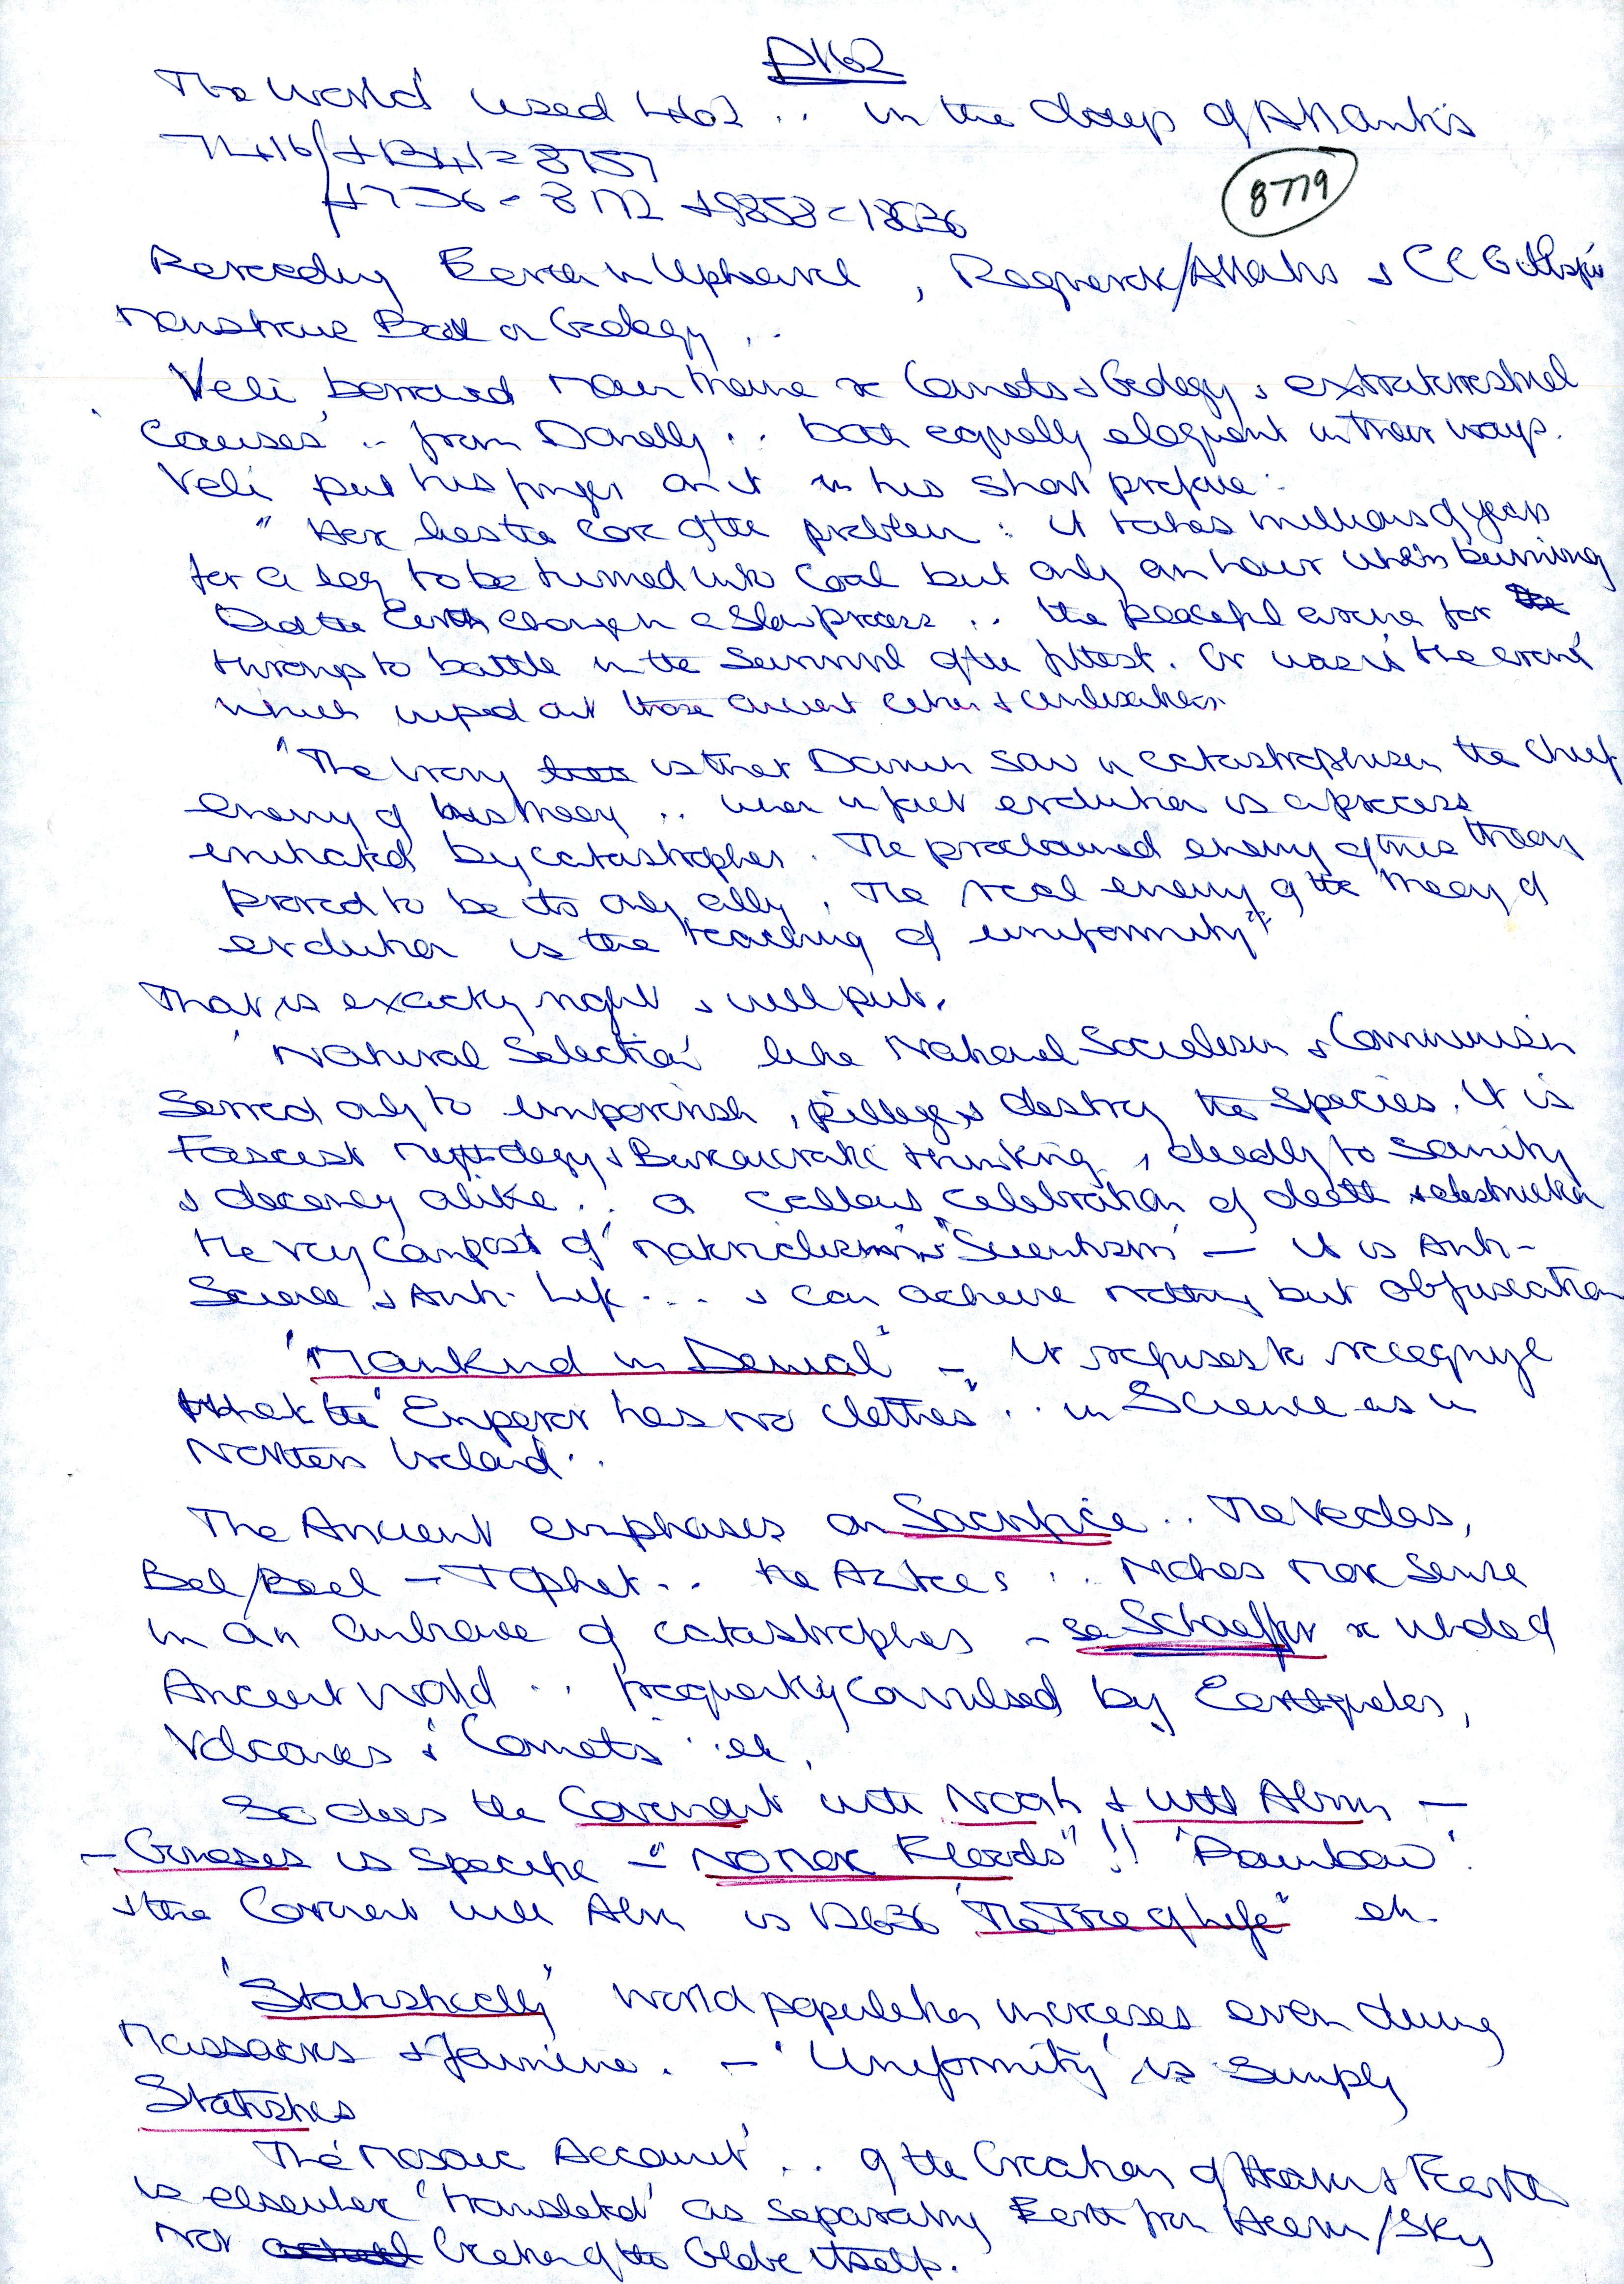 D162
The World used ... in the days of Atlantis
= 8757
8779
Rereading Earth in Upheaval, Ragnarok/Atlantis & CC Gillispie
Book on Geology ..
Veli borrowed main theme Comets & Geology & extraterrestrial
causes' .. from Donelly .. both equally eloquent in their ways.
Veli put his finger on it in his short preface:
"Here lies the core of the problem: it takes millions of years
for a log to be turned into Coal but only an hour when burning
Did the Earth change in a Slow process .. the peaceful arena for
throngs to battle in the Survival of the fittest. Or was it the arena
which wiped out those ancient & civilisations
"The irony is that Darwin saw in catastrophism the chief
enemy of his theory .. when in fact evolution is a process
initiated by catastrophes. The proclaimed enemy of this theory
proved to be its only ally. The real enemy of the theory of
evolution is the teaching of uniformity"
That is exactly right & well put.
'Natural Selection' like National Socialism & Communism
Served only to impoverish, pillage & destroy the species. It is
Fascist & Bureaucratic thinking, deadly to Sanity
& decency alike .. a callous celebration of death & destruction
the very compost of 'Scientism' — it is Anti-
Science & Anti-Life ... & can achieve nothing but obfuscation
'Mankind in Denial' – It refuses to recognize
that the 'Emperor has no clothes' .. in Science as in
Northern Ireland ..
The Ancient emphases on Sacrifice .. The Vedas,
Bel/Baal — Tophet .. the Aztecs .. Makes more sense
in an ambience of catastrophes – see Schaeffer whole of
Ancient World .. frequently convulsed by Earthquakes,
Volcanoes & Comets .. etc.
So does the Covenant with Noah & with Abram —
– Genesis is specific – "No more Floods"!! 'Rainbow'.
& the Covenant with Abm is "The Tree of Life" etc.
'Statistically' World population increases even during
Massacres & famine. – 'Uniformity' is Simply
Statistics
The 'Mosaic Account' .. of the Creation of Heaven & Earth
is elsewhere 'translated' as Separating Earth from Heaven/Sky
not Creation of the Globe itself.